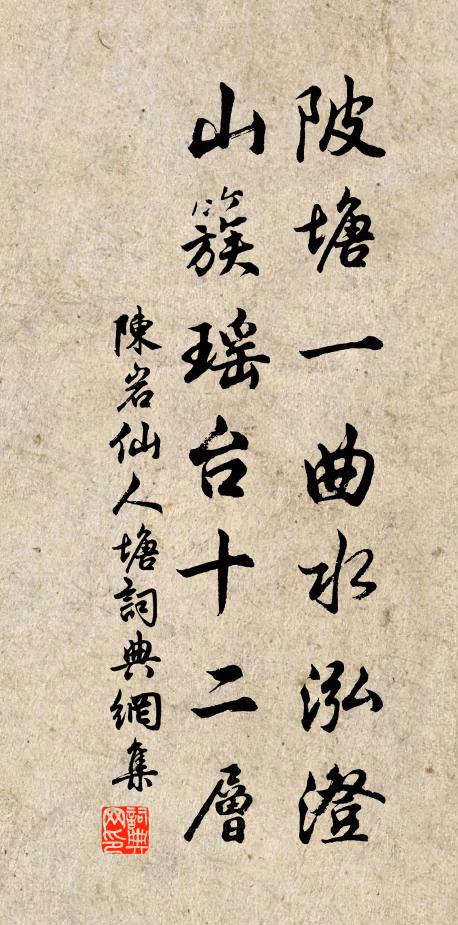 陂塘一曲水泓澄
山簇瑶台十二層
陳岩仙人塘詞典網集
詞典网印